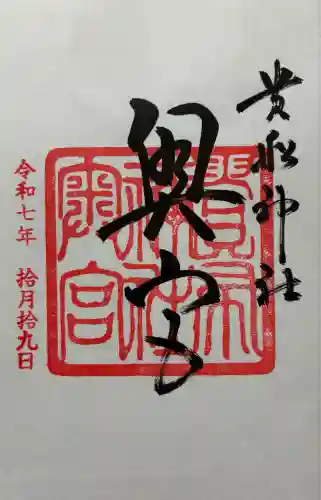 貴船神社
奥宮
貴船
神社
奥宮
令和七年 拾月拾九日